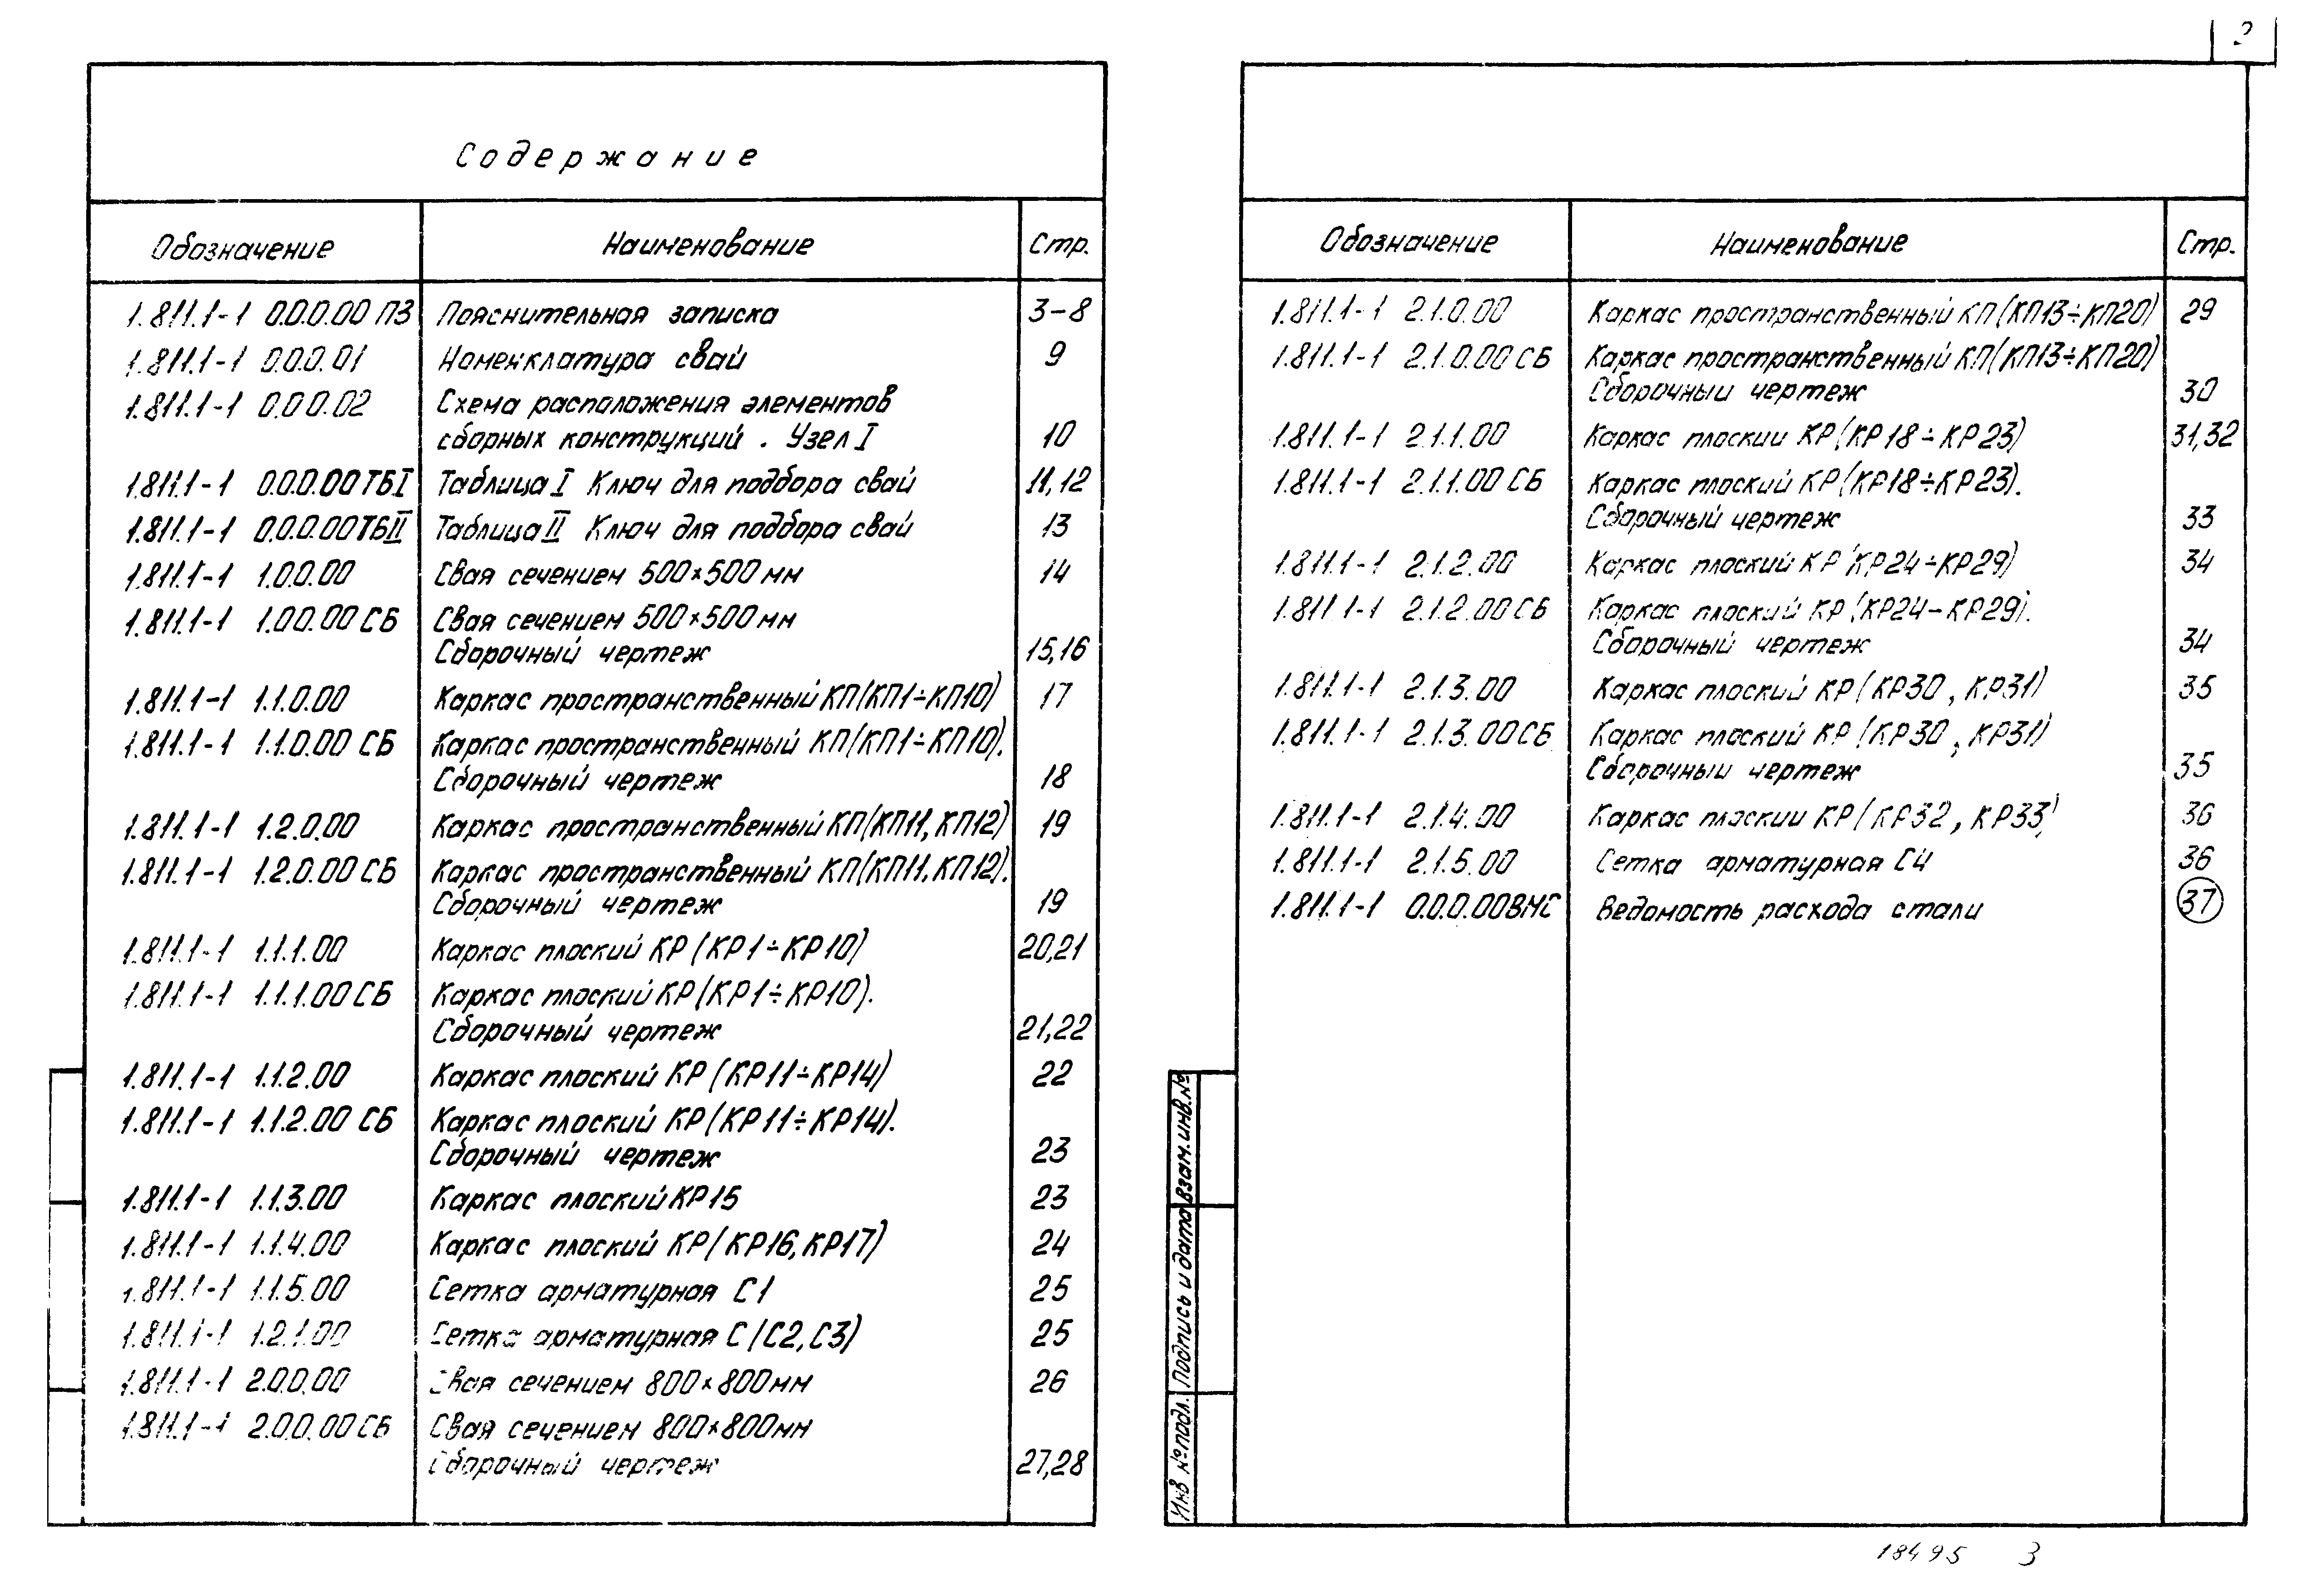 2
Содержание
Обозначение Наименование Стр.
1.811.1-1 0.0.0.00 ПЗ Пояснительная записка 3-8
1.811.1-1 0.0.0.01 Номенклатура свай 9
1.811.1-1 0.0.0.02 Схема расположения элементов
сборных конструкций. Узел I 10
1.811.1-1 0.0.0.00 ТБI Таблица I Ключ для подбора свай 11,12
1.811.1-1 0.0.0.00 ТБII Таблица II Ключ для подбора свай 13
1.811.1-1 1.0.0.00 Свая сечением 500×500 мм 14
1.811.1-1 1.0.0.00 СБ Свая сечением 500×500 мм
Сборочный чертеж 15,16
1.811.1-1 1.1.0.00 Каркас пространственный КП(КП1÷КП10) 17
1.811.1-1 1.1.0.00 СБ Каркас пространственный КП(КП1÷КП10).
Сборочный чертеж 18
1.811.1-1 1.2.0.00 Каркас пространственный КП(КП11, КП12) 19
1.811.1-1 1.2.0.00 СБ Каркас пространственный КП(КП11, КП12).
Сборочный чертеж 19
1.811.1-1 1.1.1.00 Каркас плоский КР (КР1÷КР10) 20,21
1.811.1-1 1.1.1.00 СБ Каркас плоский КР(КР1÷КР10).
Сборочный чертеж 21,22
1.811.1-1 1.1.2.00 Каркас плоский КР (КР11÷КР14) 22
1.811.1-1 1.1.2.00 СБ Каркас плоский КР (КР11÷КР14).
Сборочный чертеж 23
1.811.1-1 1.1.3.00 Каркас плоский КР15 23
1.811.1-1 1.1.4.00 Каркас плоский КР(КР16, КР17) 24
1.811.1-1 1.1.5.00 Сетка арматурная С1 25
1.811.1-1 1.2.1.00 Сетка арматурная С(С2, С3) 25
1.811.1-1 2.0.0.00 Свая сечением 800×800мм 26
1.811.1-1 2.0.0.00 СБ Свая сечением 800×800мм
Сборочный чертеж 27,28
Обозначение Наименование Стр.
1.811.1-1 2.1.0.00 Каркас пространственный КП(КП13÷КП20) 29
1.811.1-1 2.1.0.00 СБ Каркас пространственный КП(КП13÷КП20)
Сборочный чертеж 30
1.811.1-1 2.1.1.00 Каркас плоский КР(КР18÷КР23) 31,32
1.811.1-1 2.1.1.00 СБ Каркас плоский КР(КР18÷КР23).
Сборочный чертеж 33
1.811.1-1 2.1.2.00 Каркас плоский КР(КР24÷КР29) 34
1.811.1-1 2.1.2.00 СБ Каркас плоский КР(КР24-КР29).
Сборочный чертеж 34
1.811.1-1 2.1.3.00 Каркас плоский КР(КР30, КР31) 35
1.811.1-1 2.1.3.00 СБ Каркас плоский КР(КР30, КР31)
Сборочный чертеж 35
1.811.1-1 2.1.4.00 Каркас плоский КР(КР32, КР33) 36
1.811.1-1 2.1.5.00 Сетка арматурная С4 36
1.811.1-1 0.0.0.00ВМС Ведомость расхода стали 37
Инв № подл. Подпись и дата Взам.инв.№
18495 3